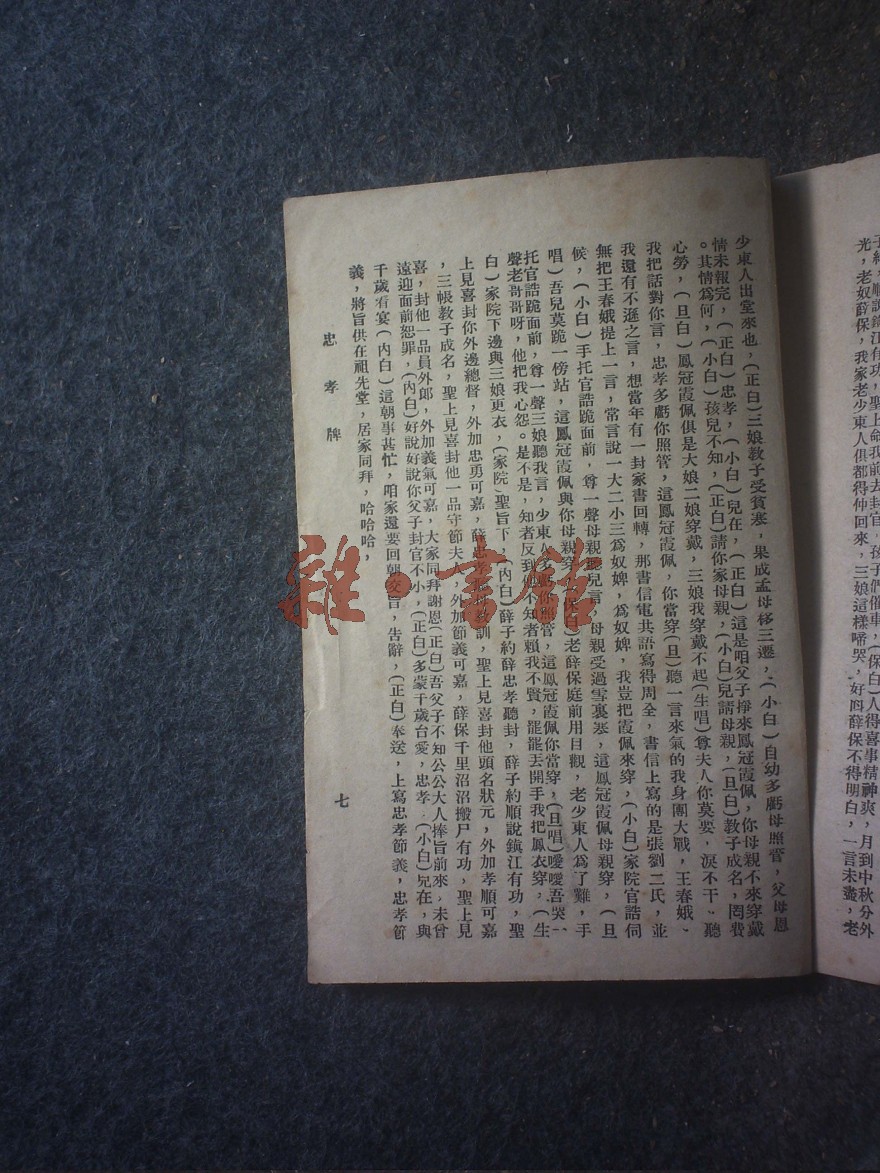 子經，順說鎮江有功，聖上命我前去封官，孩子們催車，(保白)人得喜事精神爽，月到中秋分外
光，老奴薛保，我家老少東人俱都得仲回來，三娘這樣啼哭，好叫薛保不得明白，一言未盡，老
少東人出堂來也，(正白)三娘教子受貧寒，果成孟母移三遷，(小白)自幼多虧母照管，父母恩
情未報完，(正白)忠孝，(小白)兒在，(正白)這是咱父子掙來鳳冠霞佩，你母親不來穿戴
。其情爲何，(小白)孩兒不知，(正白)請你家母親，(小白)兒請母親，(旦白)教子成名，罔費
心勞，(旦白)鳳冠霞佩俱是大娘二娘穿戴，三娘我穿戴不起(生唱)尊夫人你莫要，淚不干、聽
我把話對你言，忠孝多虧你照管，這鳳冠霞佩，你當穿(旦)聽一言來氣的我身團大戰，王春娥、
我還有不遜之言，想當年有一封家書回轉，那書信電共語寫得周全，書信上寫的是張劉二氏，並
無把王春娥提上一言，常言說一大二小三爲奴婢，爲奴婢，我豈把霞佩來穿，(小白)家院官誥伺
候，(小白)手托官誥跪面前，尊一聲母親聽兒言，母親受過雪裏寒，這鳳冠霞佩母親穿，(旦
唱)吾兒莫跪一傍站，這鳳冠霞佩與你母親穿，(保白)老薛保庭前用目觀，老少東人爲了難，手
托官誥跪面前，尊一聲三娘聽我言，少東人多虧你照管，這鳳冠霞佩你當穿，(旦唱)噯噯吾哭一
聲老哥哥呀，他把我心怨。是不是，知者反到他不知者賴我不賢，罷罷丟開手我把鳳衣穿，(生
白)家院下邊與三娘更衣，(家院)聖旨下，(內白)薛子約薛忠孝聽封，薛子約順說鎮江有功，聖
上見喜封你外邊總督，外加忠勇可嘉，薛忠孝 母教訓，聖上見喜封他頭名狀元，外加孝順可嘉
，三娘教子成名，聖上見喜封他一品守節夫人，外加節義可嘉，薛保千里沼沼搬尸有功，聖上見
喜，封他一品員外郎，外加義氣可嘉，大家同拜謝恩(正白)吾父子不知公公大人捧旨前來，未曾
遠迎面前恕罪，(內白)好說好說你父子封官不小，(正白)多蒙千歲台愛，忠孝．(小白)兒在，與
千歲看宴(內白)這朝事甚忙，咱家還要回朝交旨，告辭，(正白)奉送，上寫忠孝節義，忠孝節
義，將旨供在祖先堂，居家同拜，哈哈哈，
忠孝牌
七
雜·書館